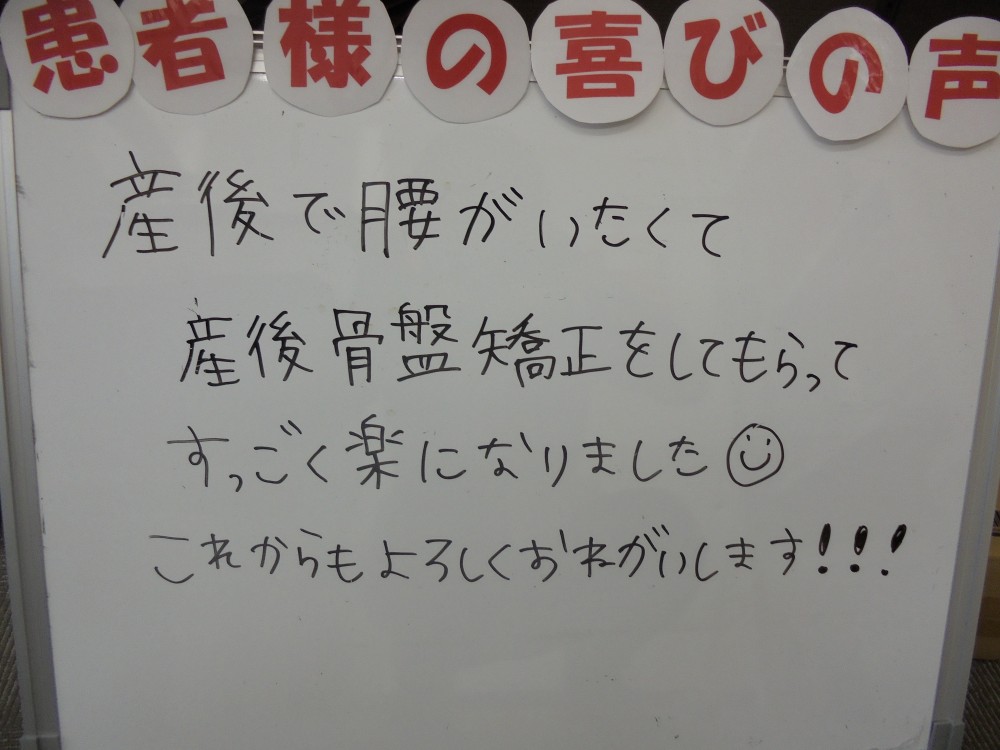 患者様の喜びの声
産後で腰がいたくて
産後骨盤矯正をしてもらって
すっごく楽になりました☺
これからもよろしくおねがいします!!!